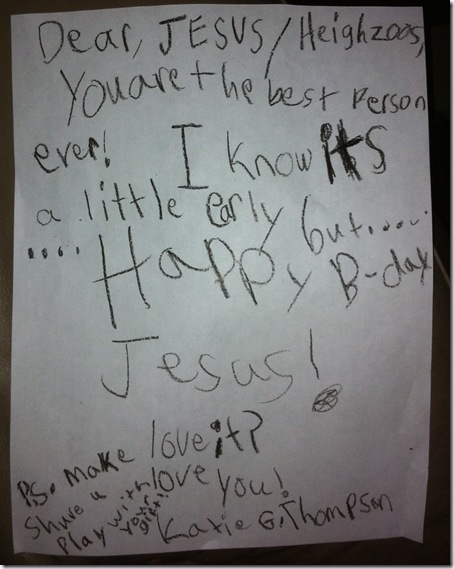 Dear, JESUS/Heighzoos,
You are the best Person
ever! I know its
a little early but.....
.... Happy B-day
Jesus!
love it?
love you!
Katie G. Thompson
P.S. Make
Shure u
Play with
your
gift!